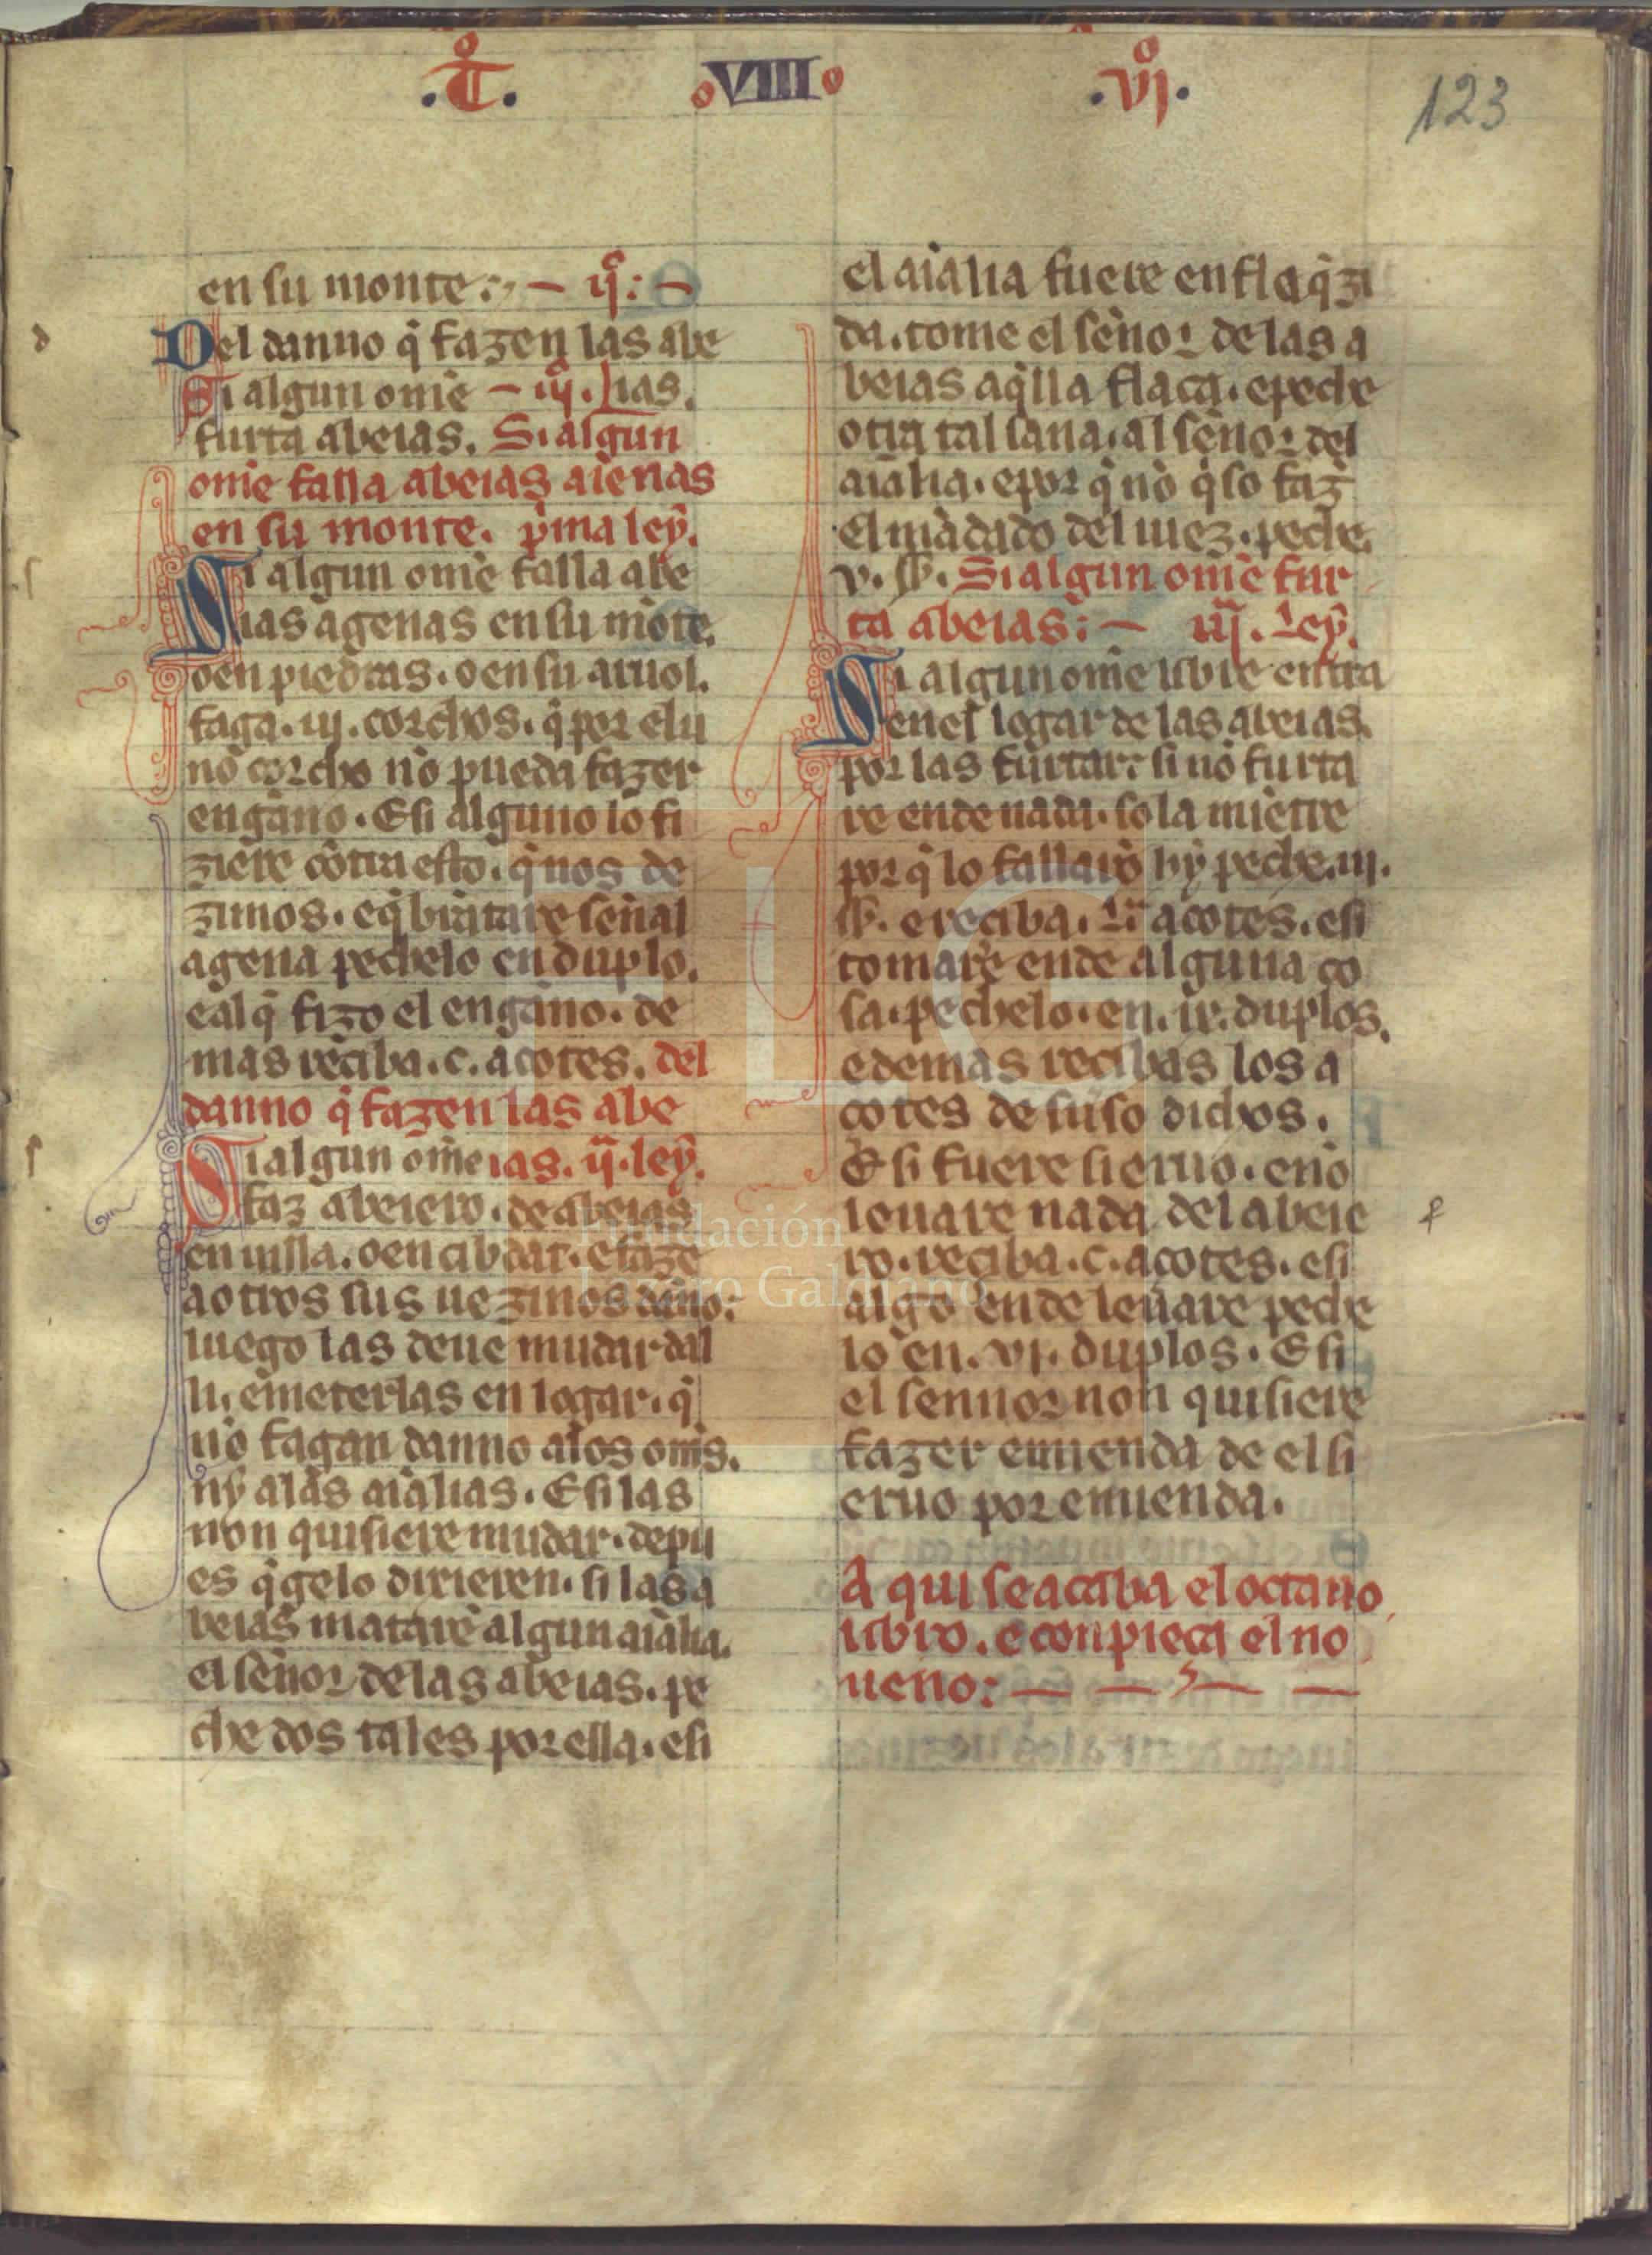 .T̊. VIII .VJ̊.
123
en su monte: — ij̊: —
Del danno q̄ fazen las abe
Si algun om̄e — iij̊. ias.
furta abeias. Si algun
om̄e falla abeias aienas
en su monte. p̄ma ley.
Si algun om̄e falla abe
ias agenas en su mōte.
o en piedras. o en su aruol.
faga. iij. corchos. q̄ por el u
no corcho nō pueda fazer
engāno. E si alguno lo fi
ziere cōtra esto. q̄ nos de
zimos. e q̄brātare señal
agena pechelo en duplo.
e al q̄ fizo el engāno. de
mas reciba. c. acotes. del
danno q̄ fazen las abe
Si algun om̄e ias. ij. ley.
faz abeiero. de abeias
en uilla. o en cibdat. e faze
a otros sus uezinos dāno:
luego las deue mudar dal
li. e meterlas en logar. q̄
nō fagan danno a los om̄s.
ny a las aīalias. E si las
non quisiere mudar. depu
es q̄ gelo dixieren. si las a
beias matarē algun aīalia.
el señor de las abeias. pe
che dos tales por ella. e si
el aīalia fuere enflaq̄zi
da. tome el señor de las a
beias aq̄lla flaca. e peche
otra tal sana. al señor del
aīalia. e por q̄ nō q̄so faz̄
el mādado del iuez. peche.
v. ss̄. Si algun om̄e fur
ta abeias: — iij. Ley.
Si algun om̄e libre entra
en el logar de las abeias.
por las furtar: si nō furta
re ende nada. sola miētre
por q̄ lo fallarō hy peche. iij.
ss̄. e reciba. L. acotes. e si
tomarē ende alguna co
sa. pechelo. en. ix. duplos.
e demas recibas los a
cotes de suso dichos.
E si fuere sieruo. e nō
leuare nada del abeie
ro. reciba. c. acotes. e si
algo ende leuare peche
lo en. vi. duplos. E si
el sennor non quisiere
fazer emienda de el si
eruo por emienda.
A qui se acaba el octauo
libro. e conpieca el no
ueno: — — —
FLG
Fundación
Lázaro Galdiano